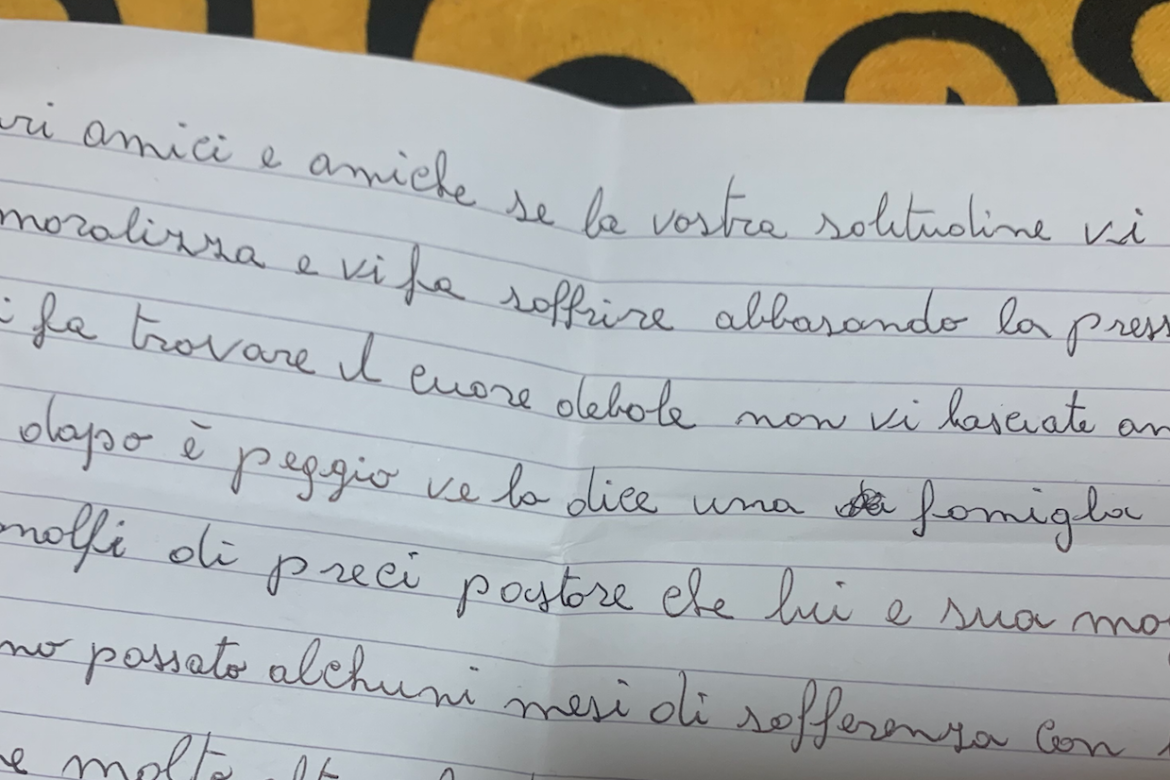 ri amici e amiche se la vostra solitudine vi
moralizza e vi fa soffrire abbasando la press
i fa trovare il cuore debole non vi lasciate an
dopo è peggio ve lo dice una famigla
molfi di preci pastore che lui e sua mo
no passato alchuni mesi di sofferenza con
e molto